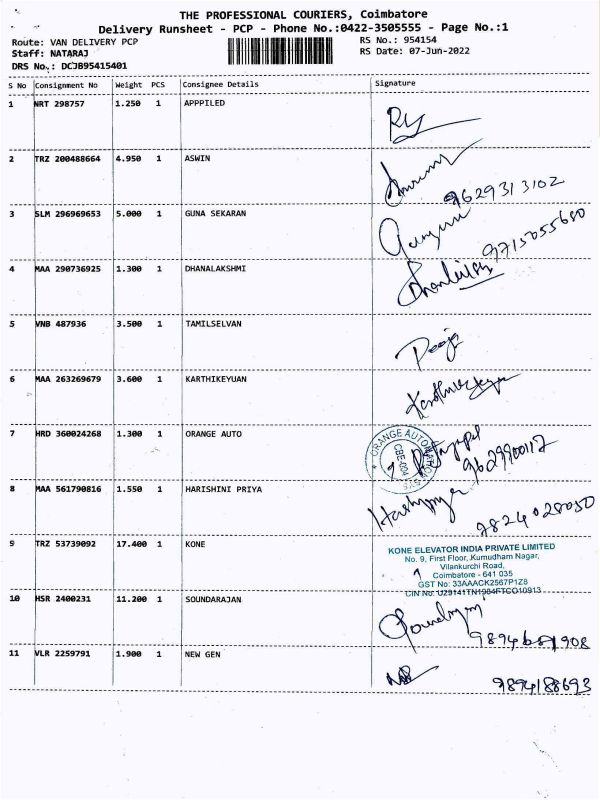 THE PROFESSIONAL COURIERS, Coimbatore
Delivery Runsheet - PCP - Phone No.:0422-3505555 - Page No.:1
Route: VAN DELIVERY PCP
Staff: NATARAJ
DRS No.: DCJB95415401
RS No.: 954154
RS Date: 07-Jun-2022
S No Consignment No Weight PCS Consignee Details Signature
1 NRT 298757 1.250 1 APPPILED
2 TRZ 200488664 4.950 1 ASWIN
9629313102
3 SLM 296969653 5.000 1 GUNA SEKARAN
9715055680
4 MAA 290736925 1.300 1 DHANALAKSHMI
5 VNB 487936 3.500 1 TAMILSELVAN
Pooja
6 MAA 263269679 3.600 1 KARTHIKEYUAN
7 HRD 360024268 1.300 1 ORANGE AUTO
ORANGE AUTOMATION SYS
CBE-004
9629900117
8 MAA 561790816 1.550 1 HARISHINI PRIYA
9824028050
9 TRZ 53739092 17.400 1 KONE
KONE ELEVATOR INDIA PRIVATE LIMITED
No. 9, First Floor, Kumudham Nagar,
Vilankurchi Road,
Coimbatore - 641 035
GST No: 33AAACK2567P1Z8
CIN No: U29141TN1984FTCO10913
10 HSR 2400231 11.200 1 SOUNDARAJAN
11 VLR 2259791 1.900 1 NEW GEN
9894188693